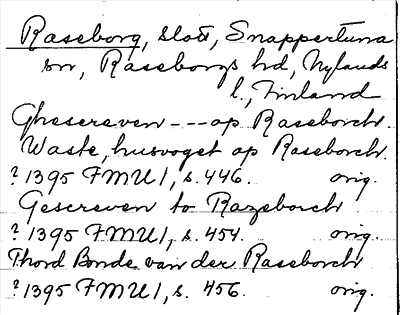 Raseborg, slott, Snappertuna
sn, Raseborgs hd, Nylands
l., Finland
Ghescreven --- op Raseborch.
Waste, husvoget op Raseborch.
? 1395 FMU 1, s. 446. orig.
Gescreven to Razeborch
? 1395 FMU 1, s. 454. orig.
Thord Bonde van der Raseborch
? 1395 FMU 1, s. 456. orig.